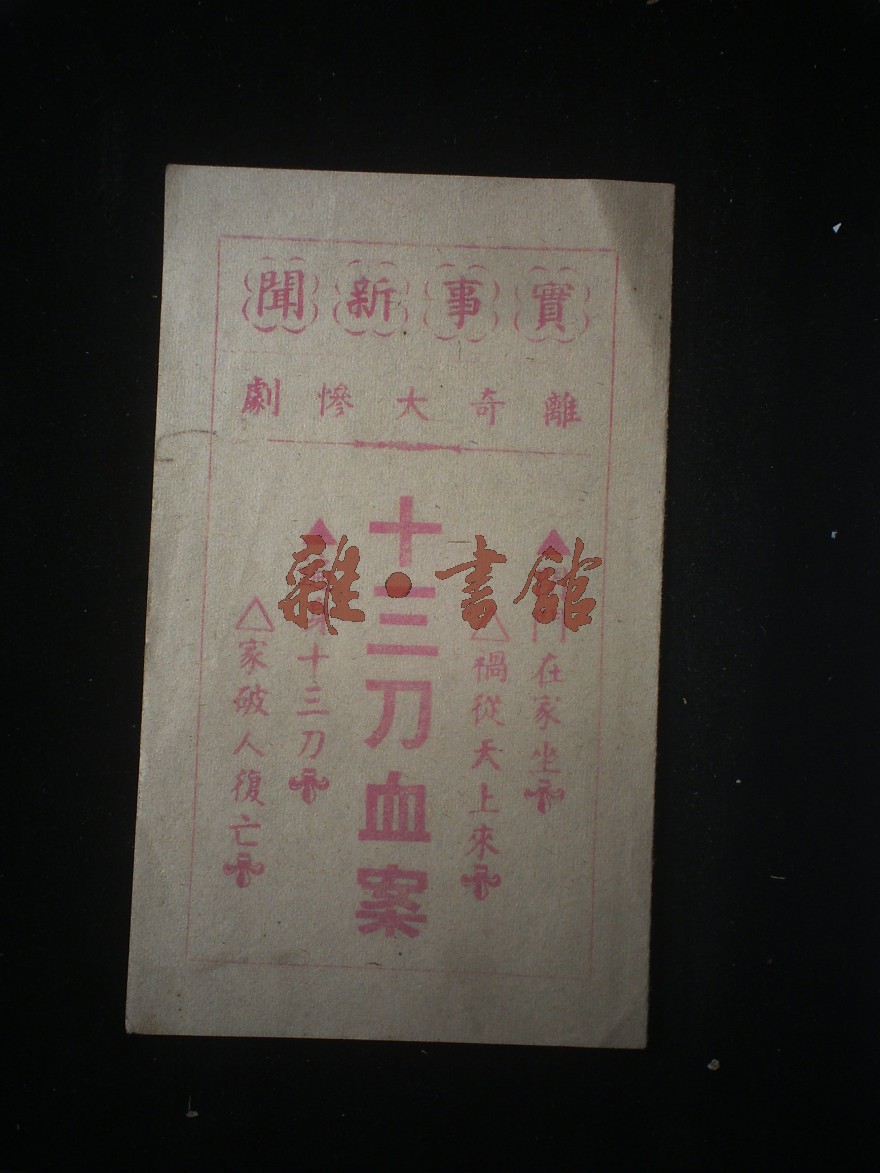 實事新聞
離奇大慘劇
在家坐
禍從天上來
十三刀血案
十三刀
家破人復亡
雜·書館